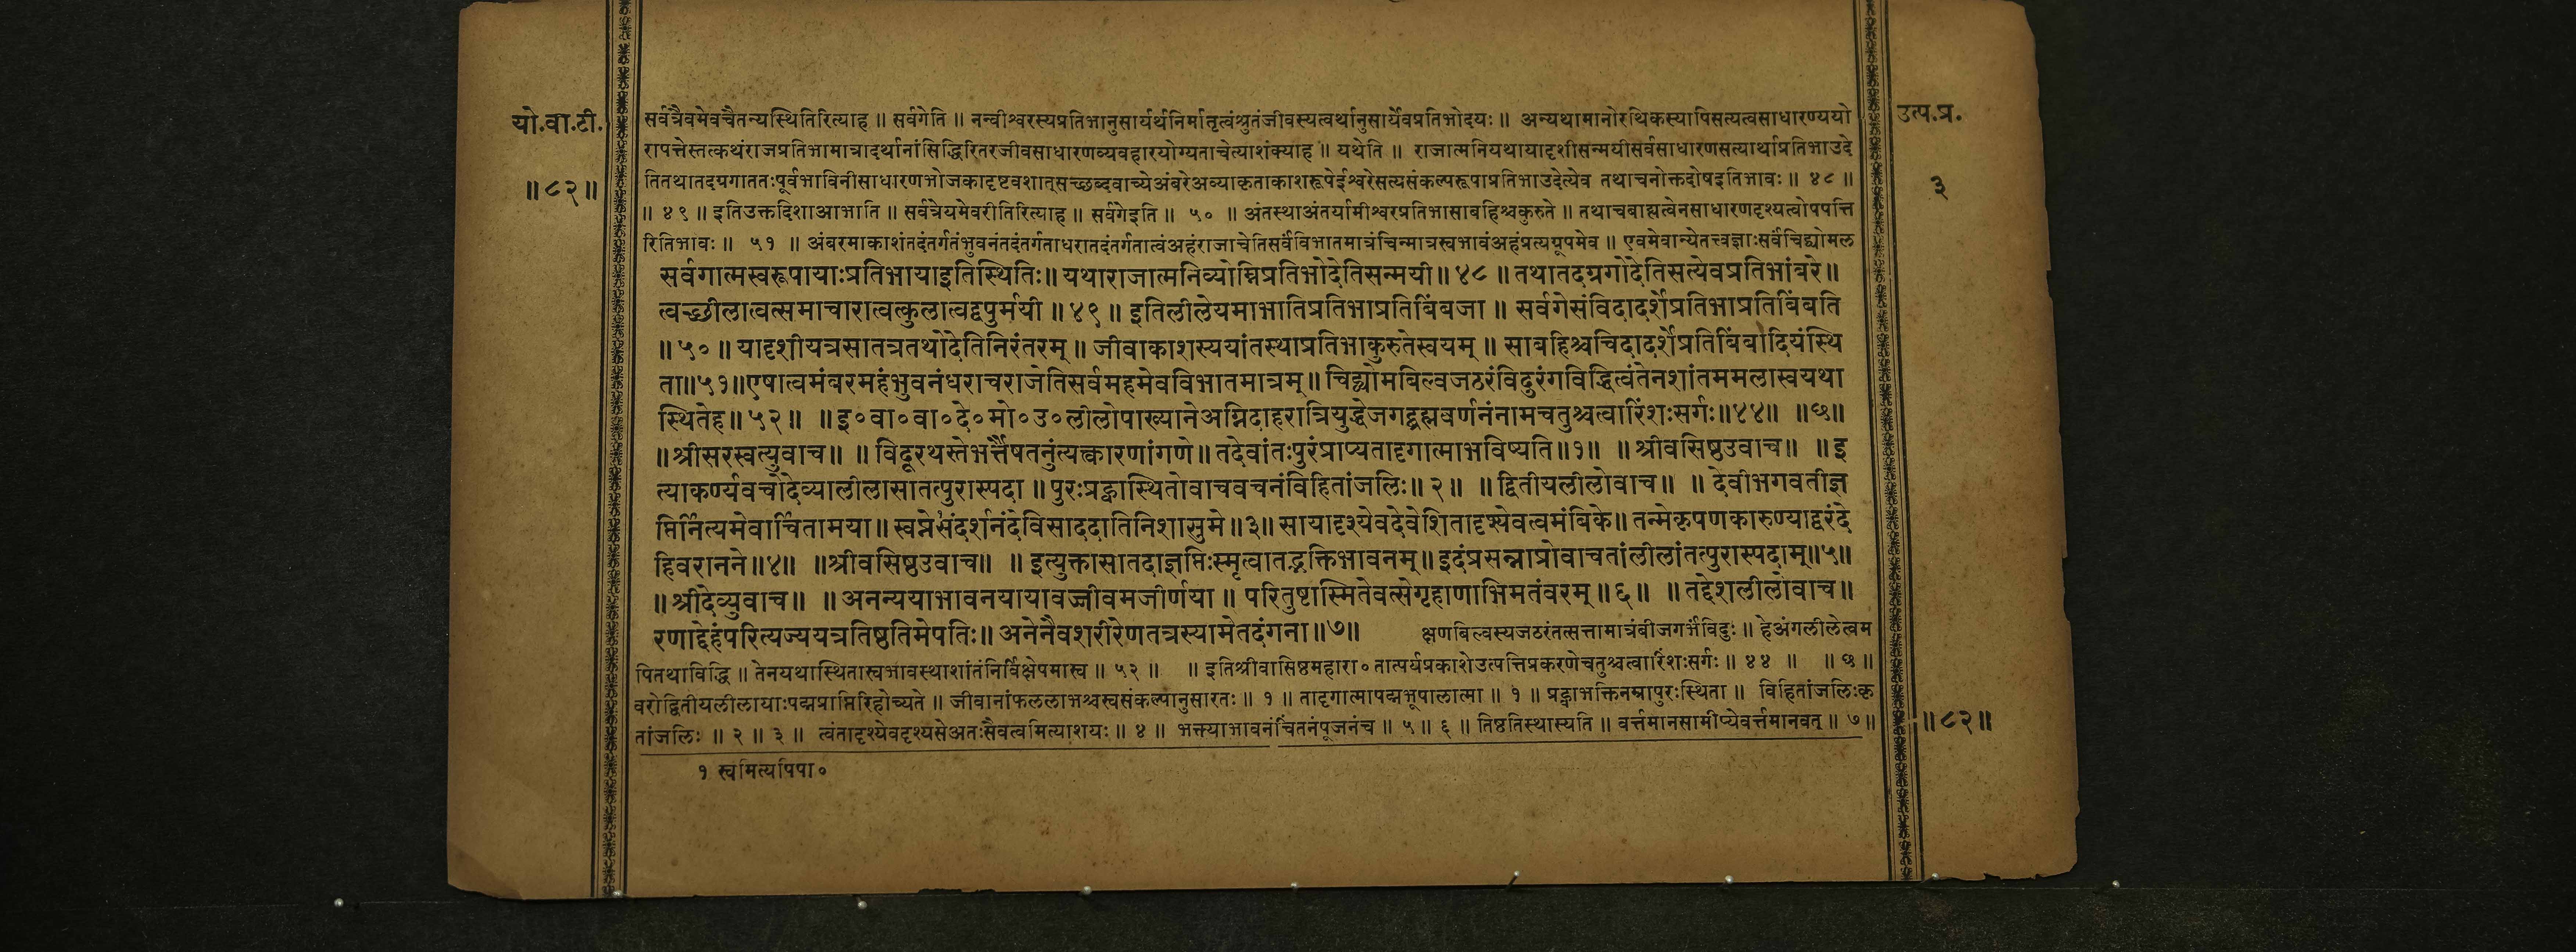 यो.वा.टी.
॥८२॥
उत्प.प्र.
३
सर्वत्रैवमेवचैतन्यस्थितिरित्याह ॥ सर्वगेति ॥ नन्वीश्वरस्यप्रतिभानुसार्यर्थनिर्मातृत्वंश्रुतंजीवस्यत्वर्थानुसार्येवप्रतिभोदयः ॥ अन्यथामानोरथिकस्यापिसत्यत्वसाधारण्ययो
रापत्तेस्तत्कथंराजप्रतिभामात्रादर्थानांसिद्धिरितरजीवसाधारणव्यवहारयोग्यताचेत्याशंक्याह ॥ यथेति ॥ राजात्मनियथायादृशीसन्मयीसर्वसाधारणसत्यार्थाप्रतिभाउदे
तितथातदग्रगाततःपूर्वभाविनीसाधारणभोजकादृष्टवशात्सच्छब्दवाच्येअंबरेअव्याकृताकाशरूपेईश्वरेसत्यसंकल्परूपाप्रतिभाउदेत्येव तथाचनोक्तदोषइतिभावः ॥ ४८ ॥
॥ ४९ ॥ इतिउक्तदिशाआभाति ॥ सर्वत्रेयमेवरीतिरित्याह ॥ सर्वगेइति ॥ ५० ॥ अंतस्थाअंतर्यामीश्वरप्रतिभासाबहिश्चकुरुते ॥ तथाचबाह्यत्वेनसाधारणदृश्यत्वोपपत्ति
रितिभावः ॥ ५१ ॥ अंबरमाकाशंतदंतर्गतंभुवनंतदंतर्गताधरातदंतर्गतात्वंअहंराजाचेतिसर्वंविभातमात्रंचिन्मात्रस्वभावंअहंप्रत्ययूपमेव ॥ एवमेवान्येतत्त्वज्ञाःसर्वंचिद्व्योमल
सर्वगात्मस्वरूपायाःप्रतिभायाइतिस्थितिः॥ यथाराजात्मनिव्योम्निप्रतिभोदेतिसन्मयी॥ ४८ ॥ तथातदग्रगोदेतिसत्येवप्रतिभांबरे॥
त्वच्छीलात्वत्समाचारात्वत्कुलात्वद्वपुर्मयी ॥ ४९ ॥ इतिलीलेयमाभातिप्रतिभाप्रतिबिंबजा ॥ सर्वगेसंविदादर्शेप्रतिभाप्रतिबिंबति
॥ ५० ॥ यादृशीयत्रसातत्रतथोदेतिनिरंतरम् ॥ जीवाकाशस्ययांतस्थाप्रतिभाकुरुतेस्वयम् ॥ साबहिश्चचिदादर्शेप्रतिबिंबादियंस्थि
ता॥५१॥एषात्वमंबरमहंभुवनंधराचराजेतिसर्वमहमेवविभातमात्रम्॥ चिद्व्योमबिल्वजठरंविदुरंगविद्धित्वंतेनशांतममलास्वयथा
स्थितेह॥ ५२॥ ॥ इ०वा०वा०दे०मो०उ०लीलोपाख्यानेअग्निदाहरात्रियुद्धेजगद्ब्रह्मवर्णनंनामचतुश्चत्वारिंशःसर्गः॥४४॥ ॥छ॥
॥ श्रीसरस्वत्युवाच॥ ॥ विदूरथस्तेभर्त्तैषतनुंत्यत्क्वारणांगणे॥ तदेवांतःपुरंप्राप्यतादृगात्माभविष्यति॥१॥ ॥ श्रीवसिष्ठउवाच॥ ॥ इ
त्याकर्ण्यवचोदेव्यालीलासातत्पुरास्पदा ॥ पुरःप्रह्वास्थितोवाचवचनंविहितांजलिः॥ २॥ ॥ द्वितीयलीलोवाच॥ ॥ देवीभगवतीज्ञ
प्तिर्नित्यमेवार्चितामया॥ स्वप्नेसंदर्शनंदेविसाददातिनिशासुमे॥३॥ सायादृश्येवदेवेशितादृश्येवत्वमंबिके॥ तन्मेकृपणकारुण्याद्वरंदे
हिवरानने॥४॥ ॥श्रीवसिष्ठउवाच॥ ॥ इत्युक्तासातदाज्ञप्तिःस्मृत्वातद्भक्तिभावनम्॥ इदंप्रसन्नाप्रोवाचतांलीलांतत्पुरास्पदाम्॥५॥
॥ श्रीदेव्युवाच॥ ॥ अनन्ययाभावनयायावज्जीवमजीर्णया ॥ परितुष्टास्मितेवत्सेगृहाणाभिमतंवरम् ॥ ६॥ ॥ तद्देशलीलोवाच॥
रणाद्देहंपरित्यज्ययत्रतिष्ठतिमेपतिः॥ अनेनैवशरीरेणतत्रस्यामेतदंगना॥७॥ क्षणबिल्वस्यजठरंतत्सत्तामात्रंबीजगर्भंविदुः ॥ हेअंगलीलेत्वम
पितथाविद्धि ॥ तेनयथास्थितास्वभावस्थाशांतंनिर्विक्षेपमास्व ॥ ५२ ॥ ॥ इतिश्रीवासिष्ठमहारा० तात्पर्यप्रकाशेउत्पत्तिप्रकरणेचतुश्चत्वारिंशःसर्गः ॥ ४४ ॥ ॥ छ ॥
वरोद्वितीयलीलायाःपद्मप्राप्तिरिहोच्यते ॥ जीवानांफललाभश्चस्वसंकल्पानुसारतः ॥ १ ॥ तादृगात्मापद्मभूपालात्मा ॥ १ ॥ प्रह्वाभक्तिनम्रापुरःस्थिता ॥ विहितांजलिःकृ
तांजलिः ॥ २ ॥ ३ ॥ त्वंतादृश्येवदृश्यसेअतःसैवत्वमित्याशयः ॥ ४ ॥ भक्त्याभावनंचिंतनंपूजनंच ॥ ५ ॥ ६ ॥ तिष्ठतिस्थास्यति ॥ वर्त्तमानसामीप्येवर्त्तमानवत् ॥ ७ ॥
॥८२॥
१ स्वमित्यपिपा०